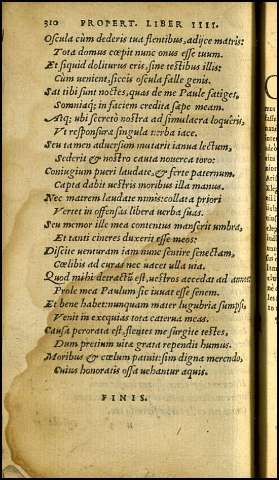 310 PROPERT. LIBER IIII.
Oscula cùm dederis tua flentibus, adijce matris:
Tota domus cœpit nunc onus esse tuum.
Et siquid doliturus eris, sine testibus illis:
Cùm uenient, siccis oscula falle genis.
Sat tibi sunt noctes, quas de me Paule fatiges,
Somniaq; in faciem credita sæpe meam.
Atq; ubi secretò nostra ad simulacra loquêris,
Vt responsura singula uerba iace.
Seu tamen aduersum mutarit ianua lectum,
Sederit & nostro cauta nouerca toro:
Coniugium pueri laudate, & ferte paternum.
Capta dabit uestris moribus illa manus.
Nec matrem laudate nimis: collata priori
Vertet in offensas libera uerba suas.
Seu memor ille mea contentus manserit umbra,
Et tanti cineres duxerit esse meos:
Discite uenturam iam nunc sentire senectam,
Cœlibis ad curas nec uacet ulla uia.
Quod mihi detractũ est, uestros accedat ad annos
Prole mea Paulum sic iuuat esse senem.
Et bene habet: nunquam mater lugubria sumpsi,
Venit in exequias tota caterua meas.
Causa perorata est, flentes me surgite testes,
Dum pretium uitæ grata rependit humus.
Moribus & cœlum patuit: sim digna merendo,
Cuius honoratis ossa uehantur aquis.
FINIS.